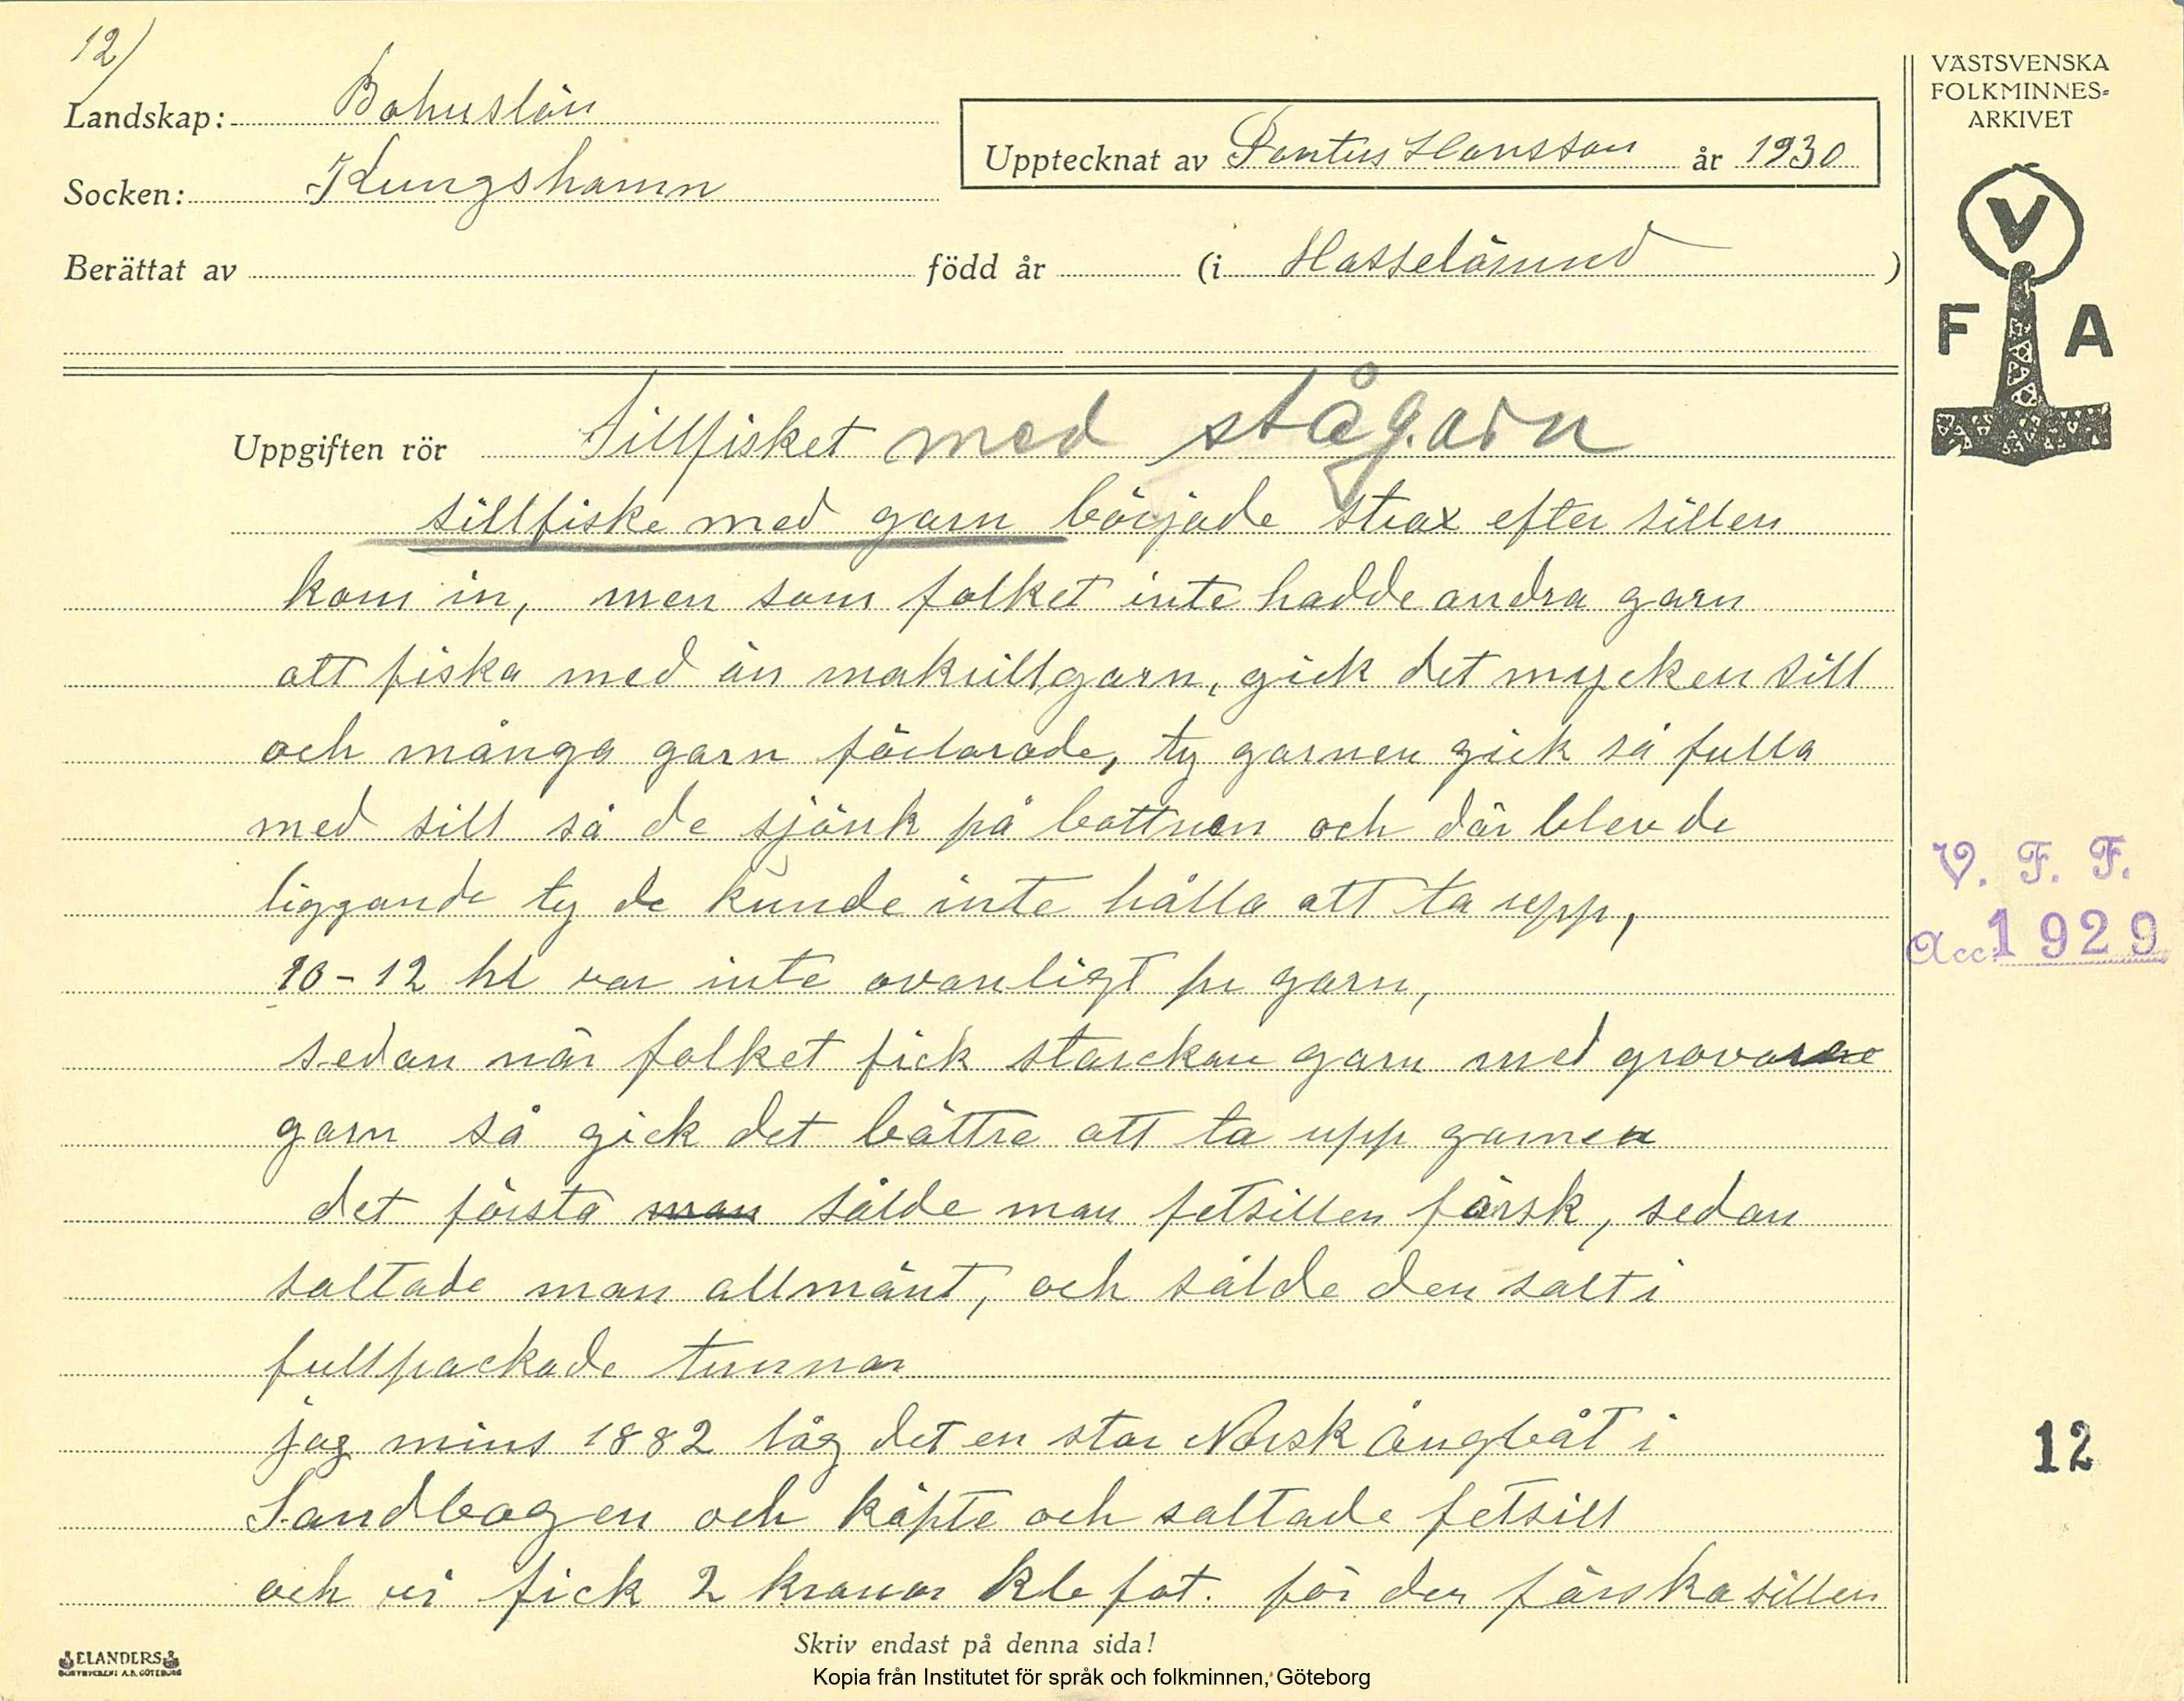 12/
VÄSTSVENSKA
FOLKMINNES-
ARKIVET
Landskap: Bohuslän
Upptecknat av Pontus Hansson år 1930
Socken: Kungshamn
Berättat av född år (i Hasselösund )
V
F A
Uppgiften rör Sillfisket med stågarn
sillfiske med garn började strax efter sillen
kom in, men som folket inte hadde andra garn
att fiska med än makrillgarn, gick det mycken sill
och många garn förlorade, ty garnen gick så fulla
med sill så de sjönk på bottnen och där blev de
liggande ty de kunde inte hålla att ta upp,
10-12 hl var inte ovanligt pr garn,
sedan när folket fick starckare garn med grovare
garn så gick det bättre att ta upp garnen
det första man sålde man fetsillen färsk, sedan
saltade man allmänt, och sålde den salt i
fullpackade tunnor
jag mins 1882 låg det en stor Norsk ångbåt i
Sandbogen och köpte och saltade fetsill
och vi fick 2 kronor kb fot. för den färska sillen
V. F. F.
Acc. 1929
12
ELANDERS
BOKTRYCKERI A.B. GÖTEBORG
Skriv endast på denna sida!
Kopia från Institutet för språk och folkminnen, Göteborg